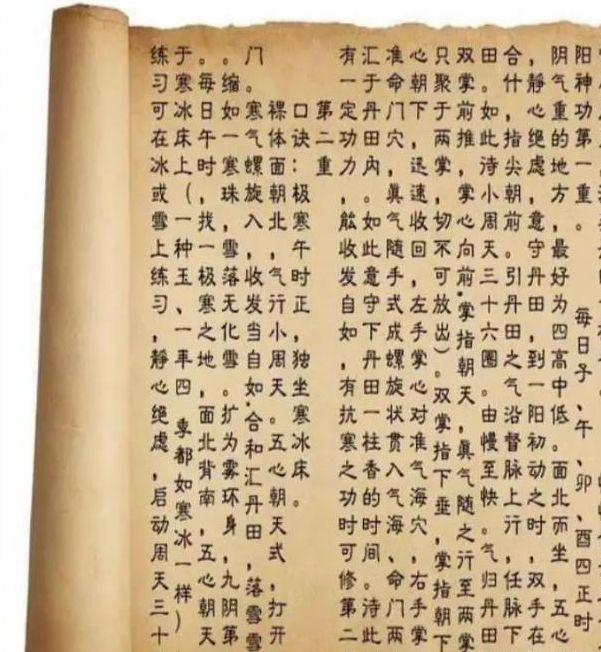 阳神功第一重。 每日子、午、卯、酉四正时
阴气重的地方。最好为四高中低。面北而坐，五心
，静心绝虑，意守丹田，到一阳初动之时，双手在
合什，指尖朝前。引丹田之气沿督脉上行，任脉下
田。如此待小周天三十六圈。由慢至快。气归丹田
双掌前推，掌心向前，掌指朝天，真气随之行至两掌
只聚于两掌，切不可放出）。双掌指下垂，掌指朝下
心朝下，迅速收回，左手掌心对准气海穴，右手掌
准命门穴，真气随手式成螺旋状贯入气海、命门两
汇于丹田内。如此意守下丹田一柱香的时间。待此
有一定功力，能收发自如，有抗寒之功时可修第二
第二重
口诀：极寒午时正，独坐寒冰床。
裸体面朝北，气行小周天。五心朝天式，打开
门 寒气螺旋入，收发当自如.合和汇丹田，落雪雪
。缩。如一寒珠，雪落无化雪。扩为雾环身，九阴第
。每日午时，找一极寒之地，面北背南，五心朝天
于寒冰床上（一种玉、一年四季都如寒冰一样）
练习可在冰或雪上练习，静心绝虑，启动周天三十